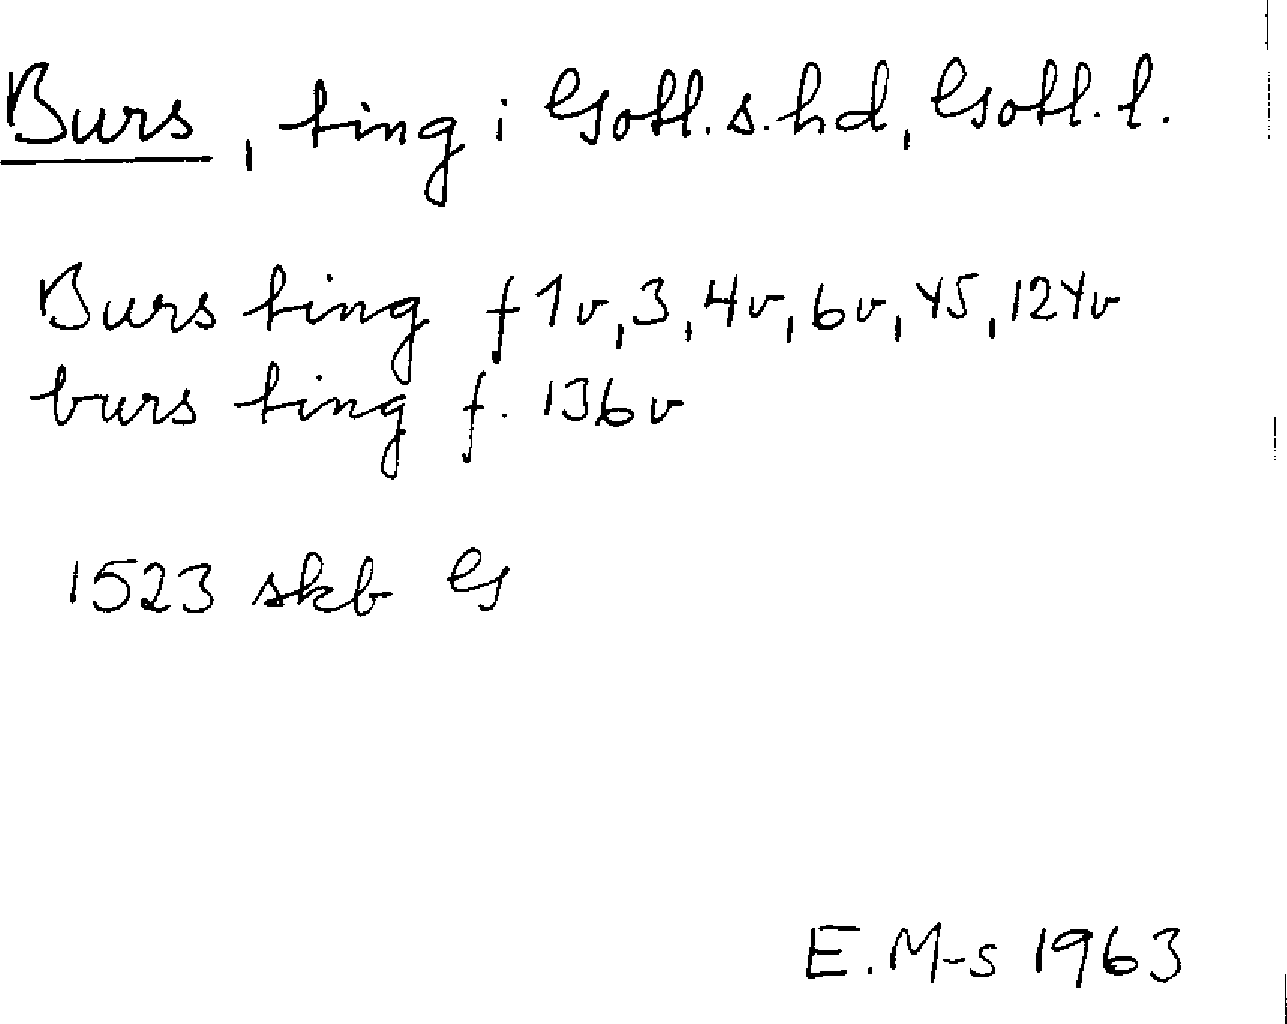 Burs, ting i Gotl. s. hd, Gotl. l.
Burs ting f 1v, 3, 4v, 6v, 45, 124v
burs ting f. 136v
1523 skb G
E. M-s 1963